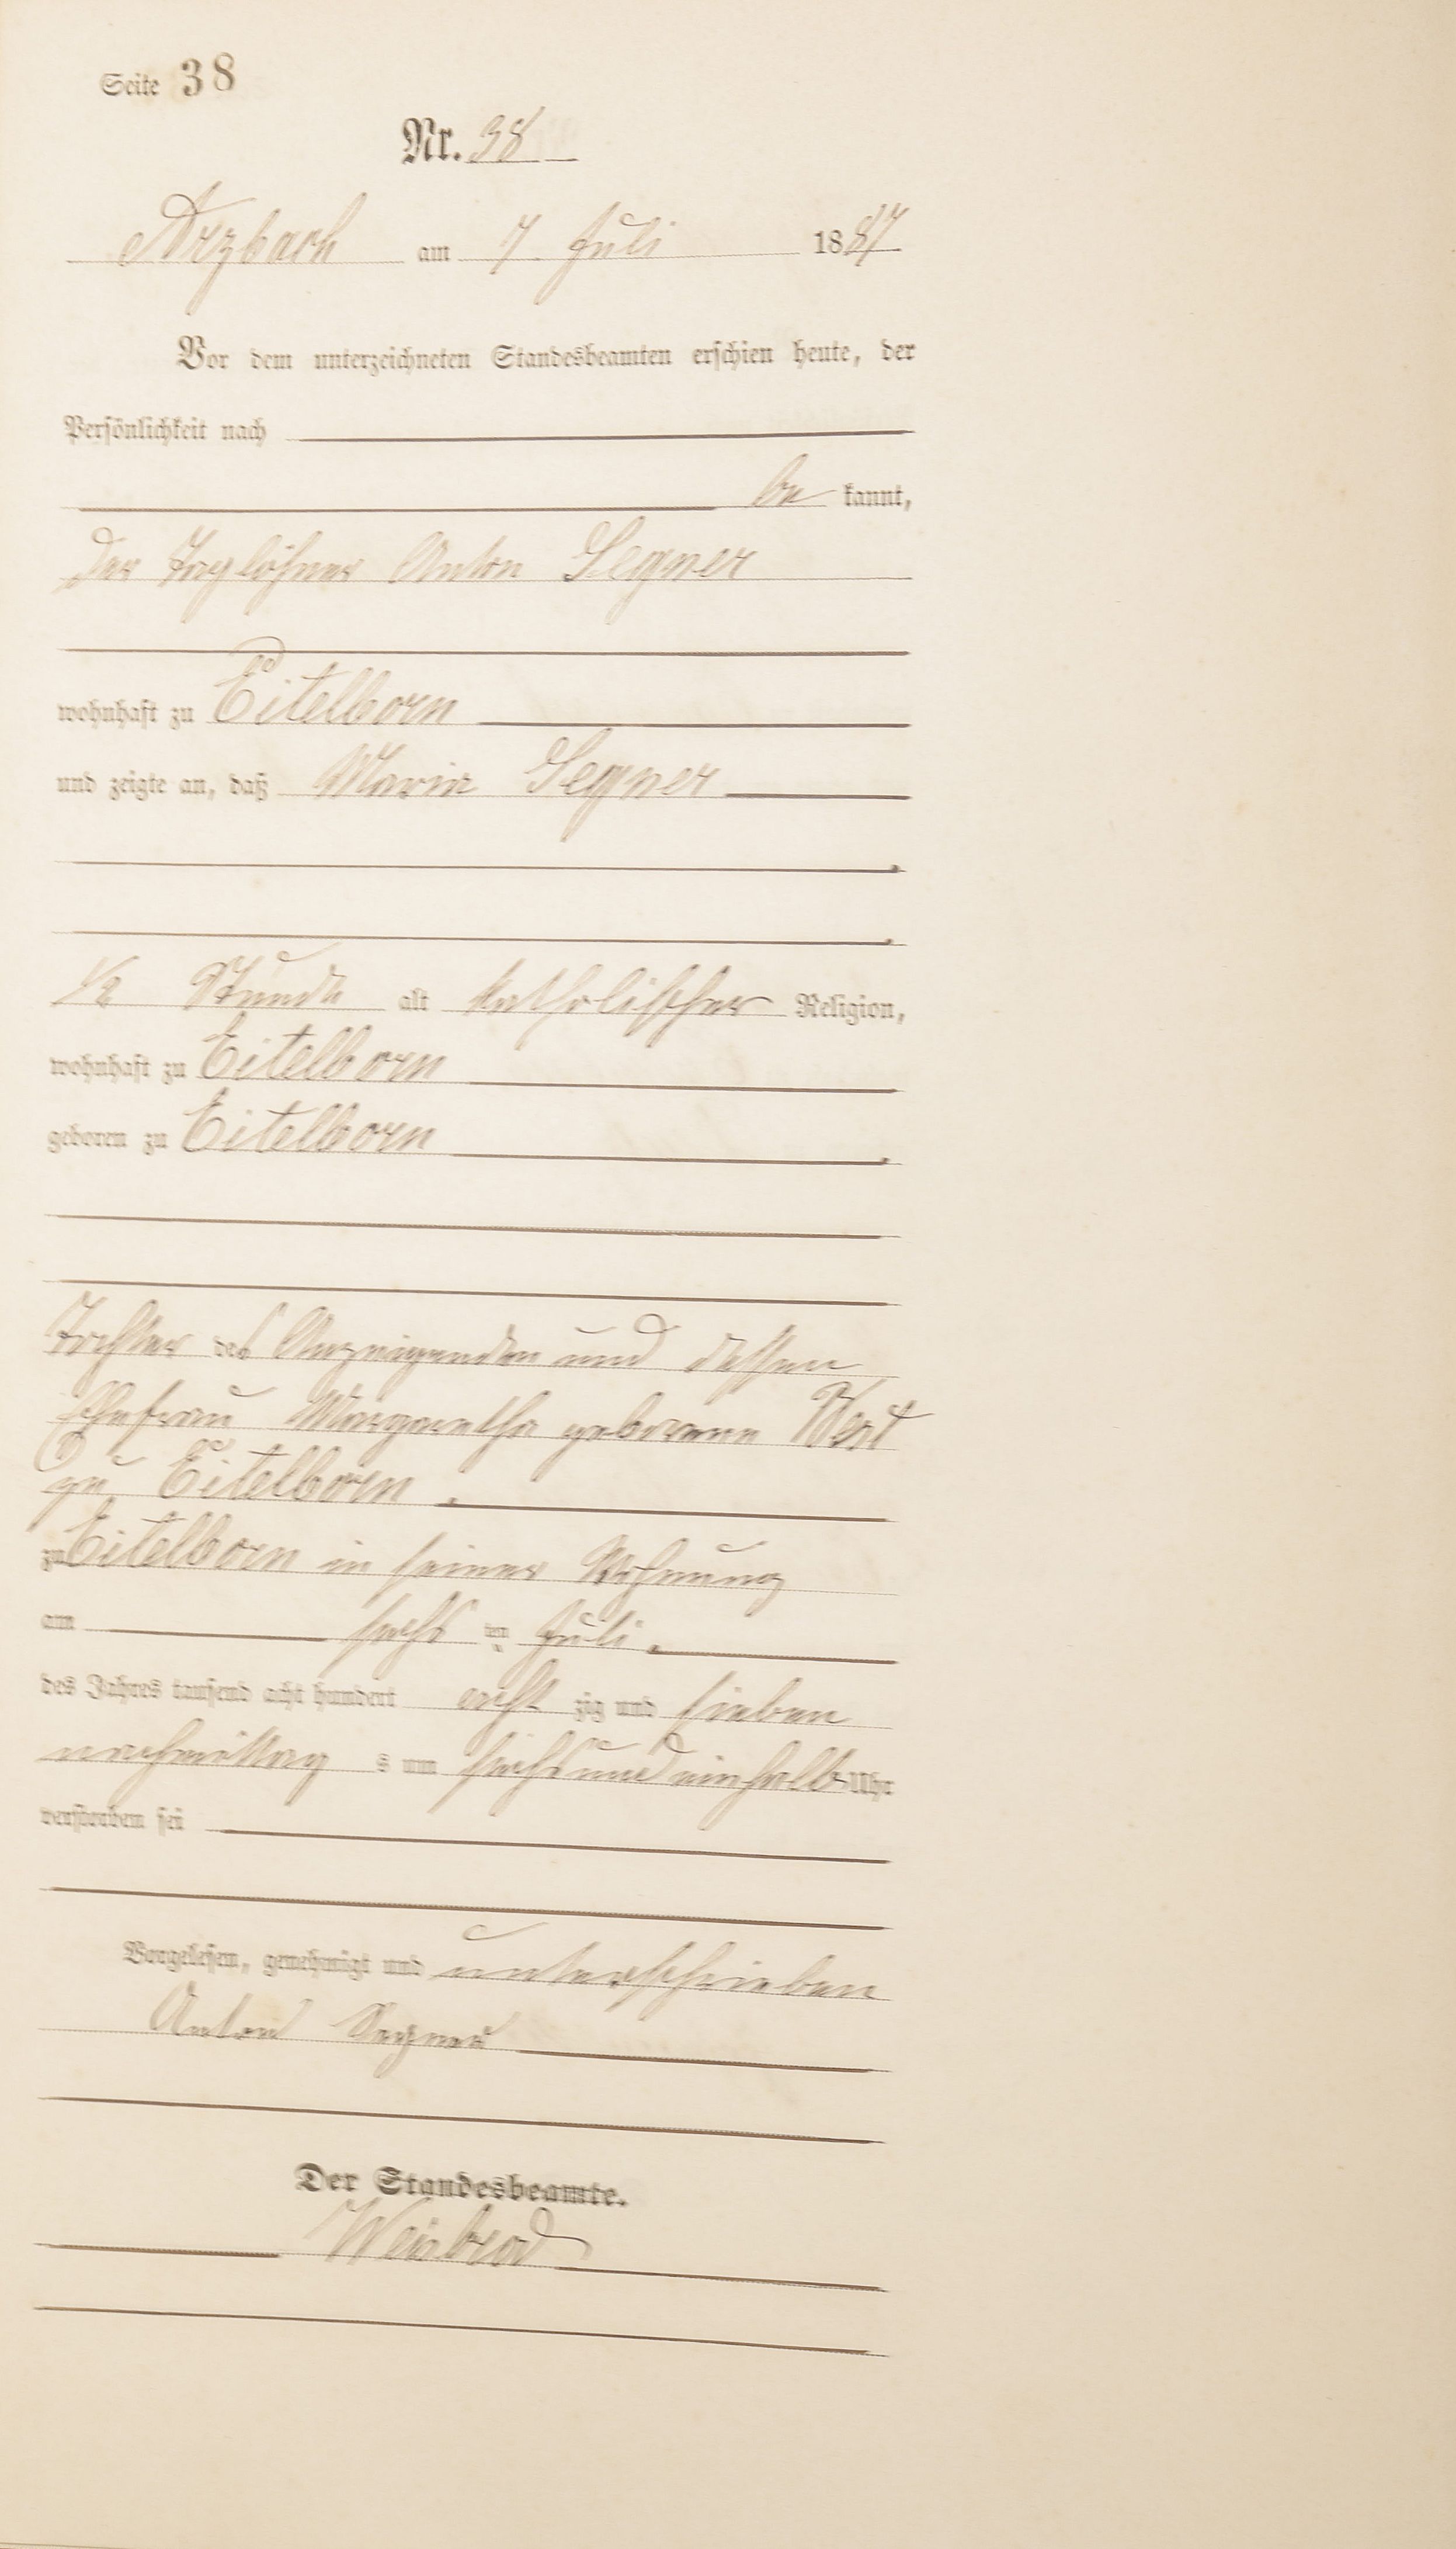 Seite 38
Nr. 38
Arzbach am 7 Juli 1887
Vor dem unterzeichneten Standesbeamten erschien heute, der
Persönlichkeit nach
be kannt,
Der Taglöhner Anton Segner
wohnhaft zu Eitelborn
und zeigte an, daß Maria Segner
1/2 Stunde alt katholischer Religion,
wohnhaft zu Eitelborn
geboren zu Eitelborn
Tochter des Anzeigenden und dessen
Ehefrau Margaretha geborene
zu Eitelborn.
zu Eitelborn in seiner Wohnung
am sechs ten Juli.
des Jahres tausend acht hundert acht zig und sieben
nachmittag s um sechs und einhalb Uhr
verstorben sei
Vorgelesen, genehmigt und unterschrieben
Anton Segner
Der Standesbeamte.
Weisbrod